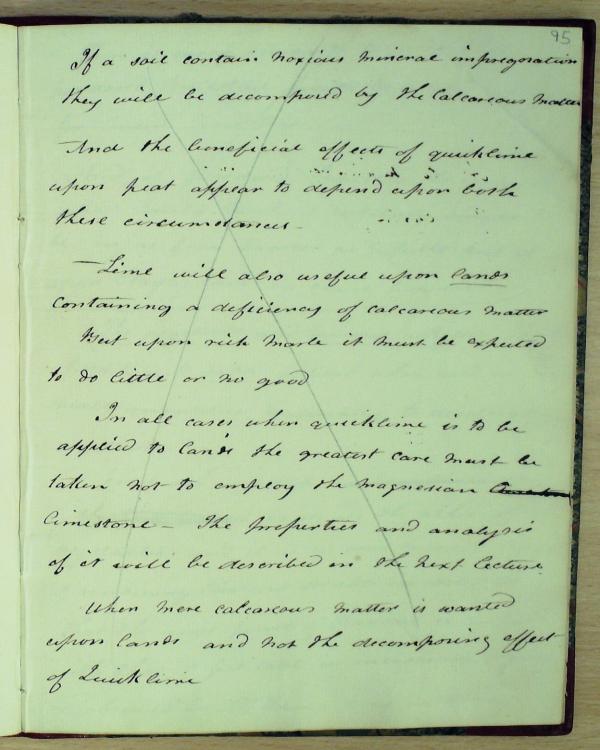 95
If a soil contain noxious mineral impregnation
they will be decomposed by the Calcareous matter
— And the beneficial effects of quicklime
upon peat appear to depend upon both
these circumstances —
— Lime will also useful upon lands
containing a deficiency of calcareous matter
But upon rich marle it must be expected
to do little or no good
In all cases when quicklime is to be
applied to lands the greatest care must be
taken not to employ the magnesian
limestone — The properties and analysis
of it will be described in the next lecture.
When mere calcareous matter is wanted
upon lands and not the decomposing effect
of Quicklime